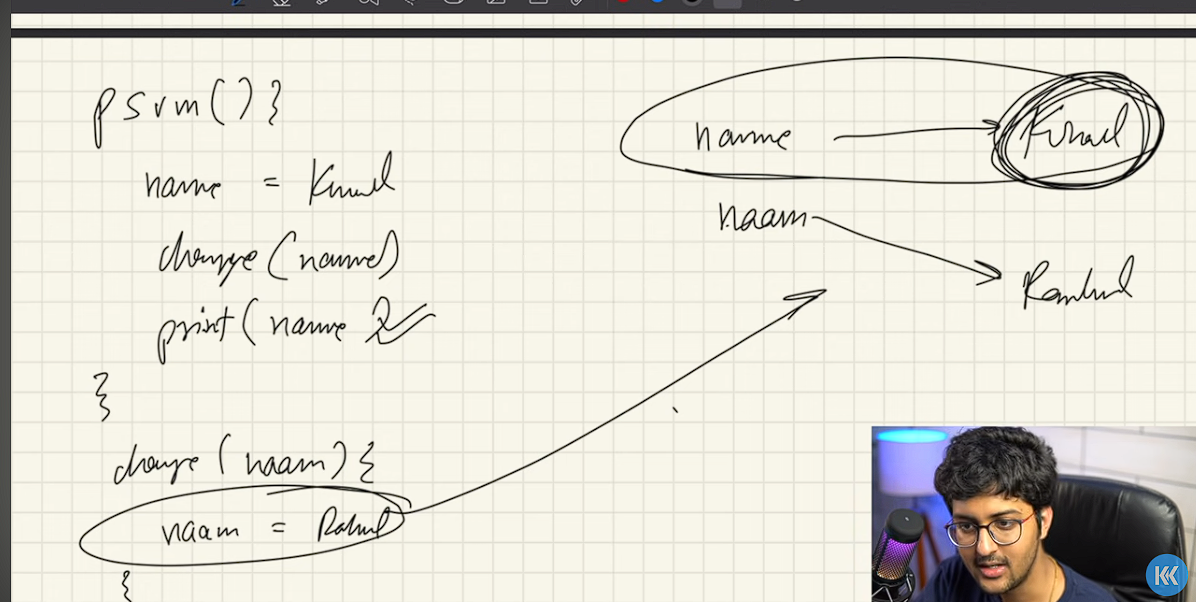 psvm(){
name = Kunal
change(name)
print(name)
}
change(naam){
naam = Rahul
}
name → Kunal
naam → Rahul
KK